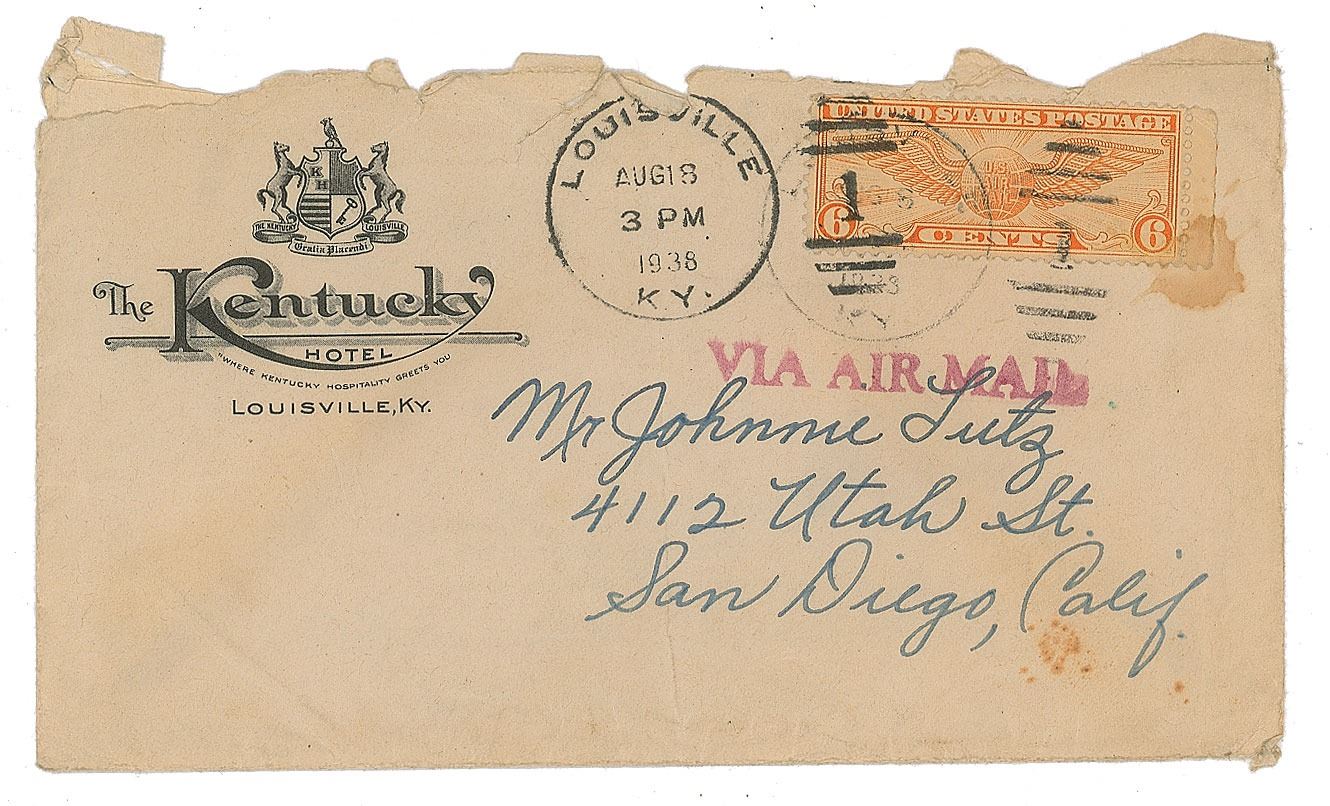 K
H
THE KENTUCKY LOUISVILLE
Gratia Placendi
The Kentucky
HOTEL
"WHERE KENTUCKY HOSPITALITY GREETS YOU
LOUISVILLE, KY.
LOUISVILLE
AUG 18
3 PM
1938
KY.
UNITED STATES POSTAGE
U.S.
6 CENTS 6
1
1938
KY
VIA AIR MAIL
Mr Johnnie Lutz
4112 Utah St.
San Diego, Calif.